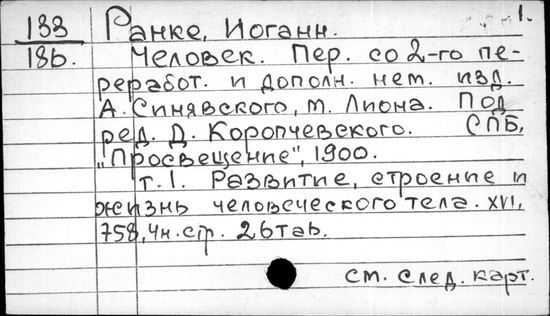 1.
133 Ранке, Иоганн.
186. Человек. Пер. со 2-го пе-
реработ. и дополн. нем. изд.
А. Синявского, М. Лиона. Под
ред. Д. Коропчевского. СПБ,
"Просвещение", 1900.
т. 1. Развитие, строение и
жизнь человеческого тела. XVI,
758, 4н. стр. 26 таб.
см. след. карт.